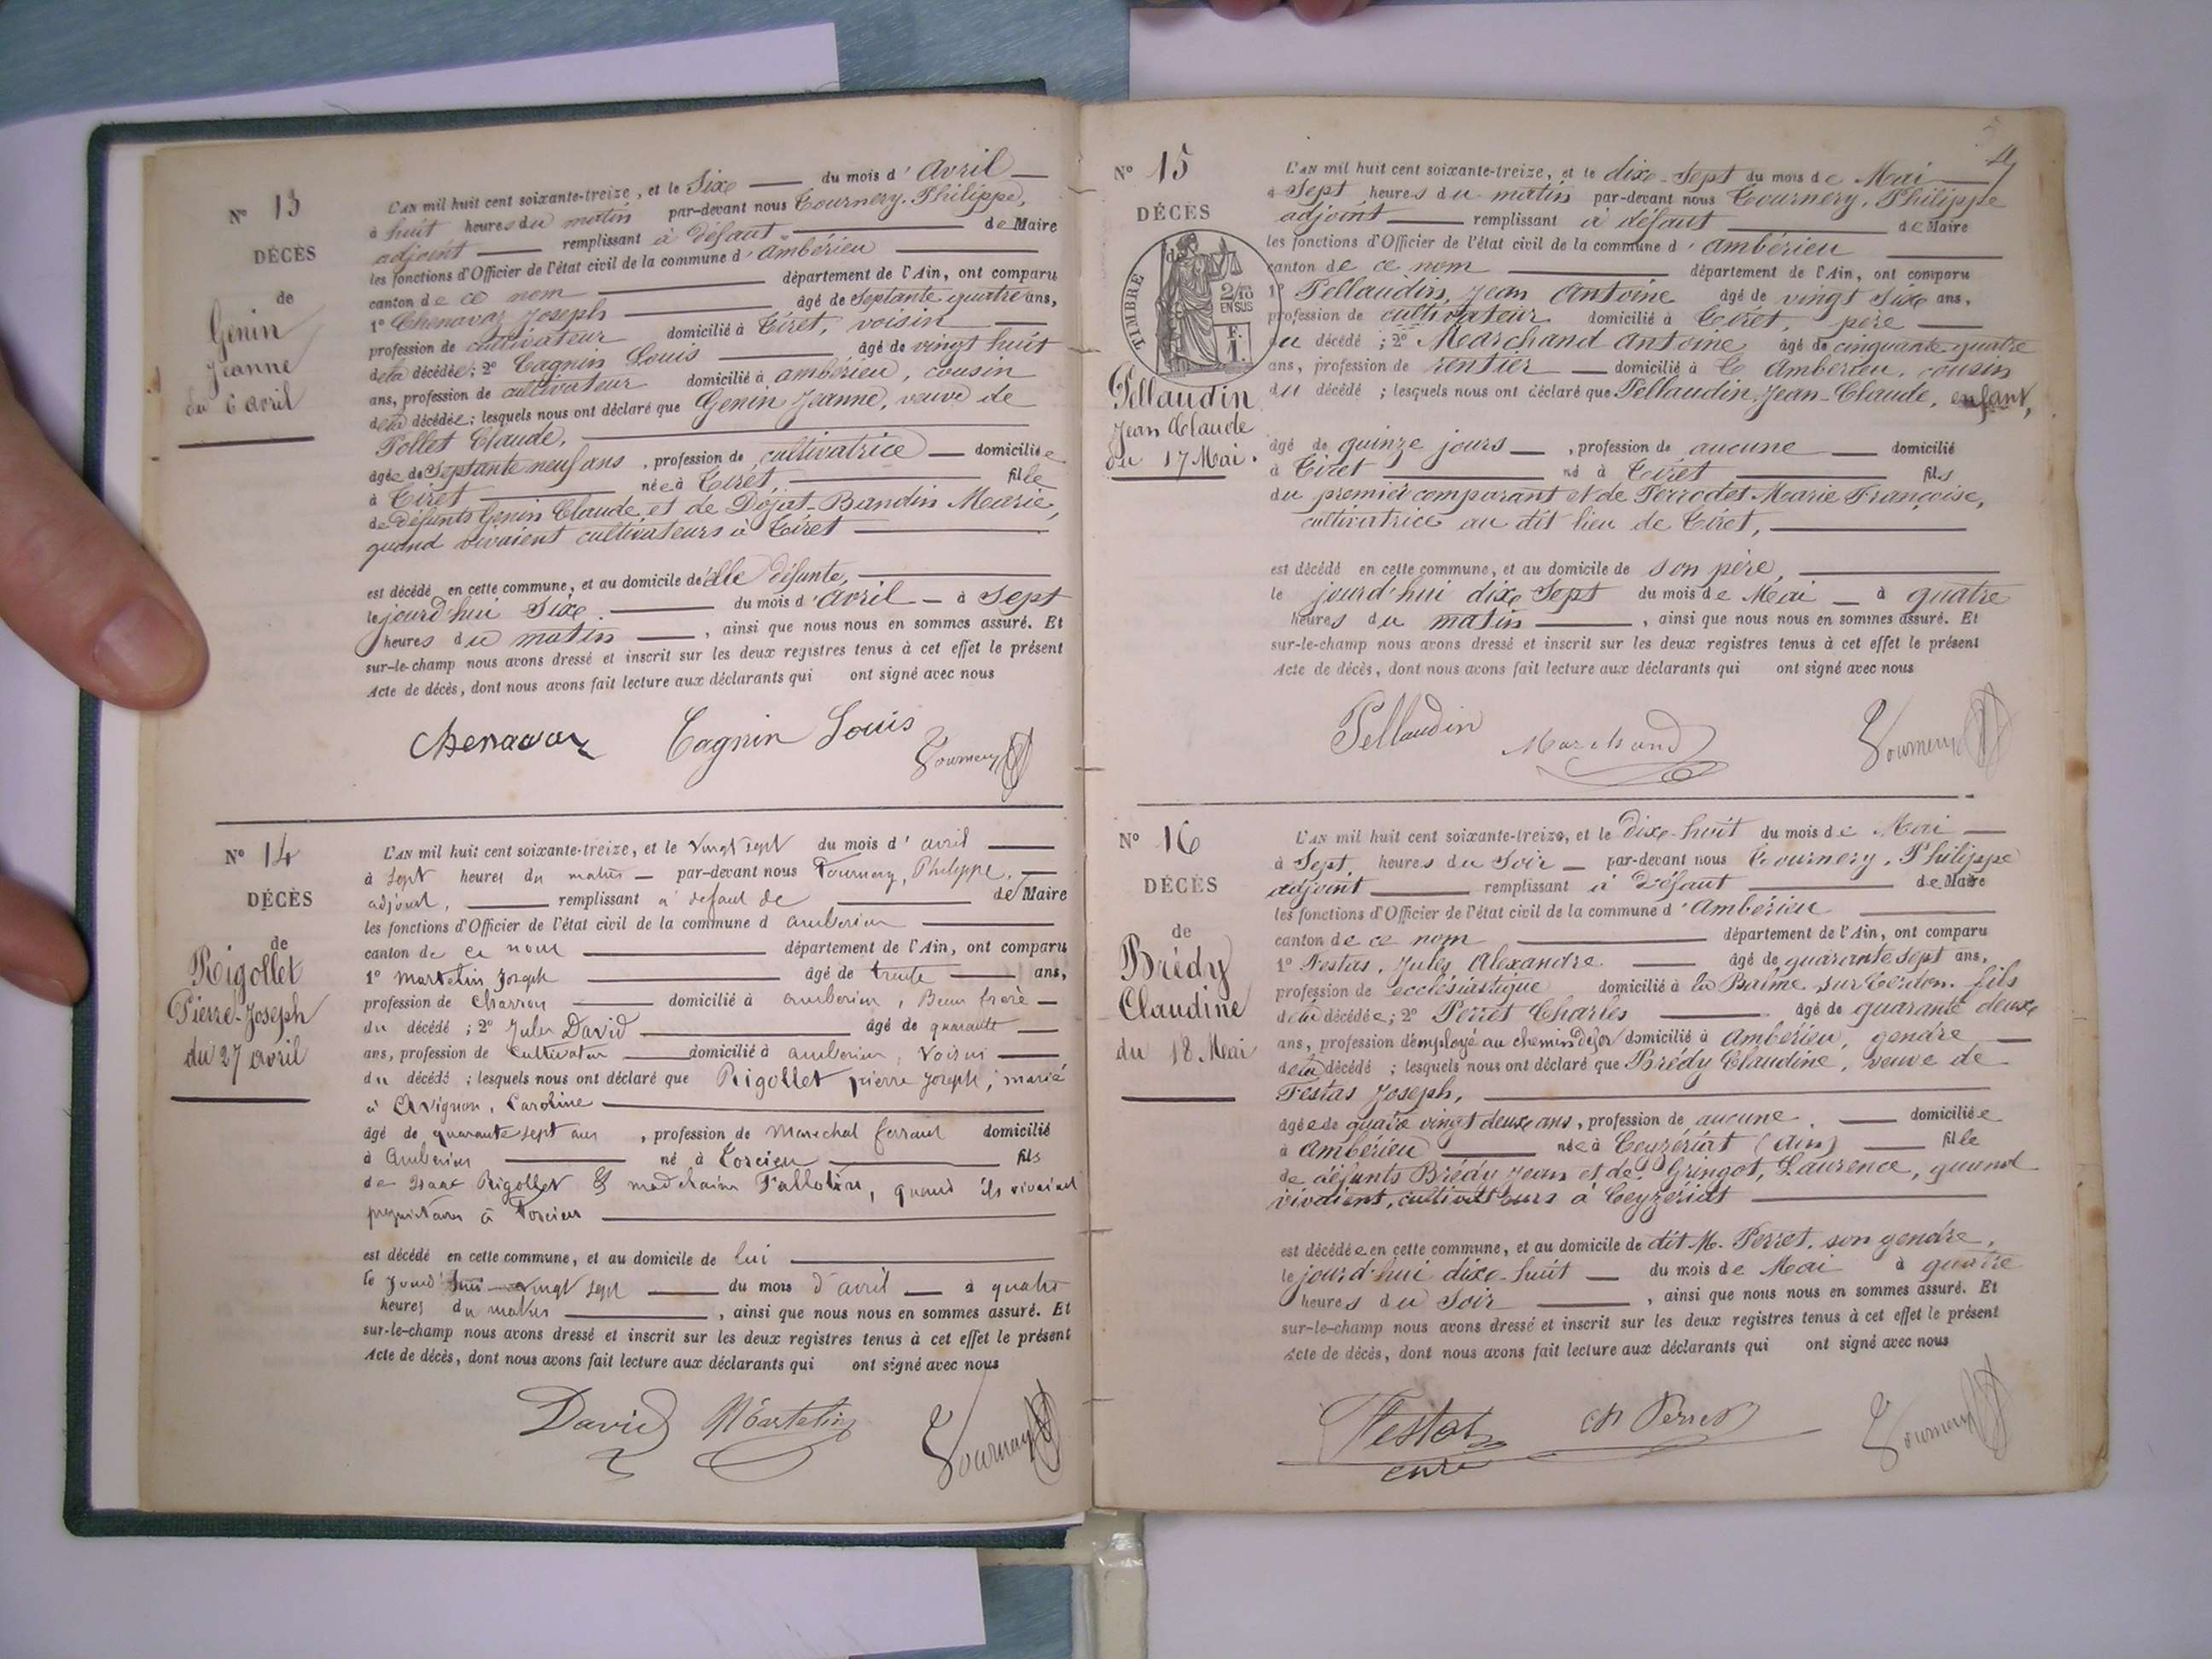 N° 13
DÉCÈS
de
Genin
Jeanne
du 6 avril
L'AN mil huit cent soixante-treize, et le Six du mois d'Avril
à huit heures du matin par-devant nous Tournery, Philippe,
adjoint remplissant à défaut de Maire
les fonctions d'Officier de l'état civil de la commune d'Ambérieu
canton de ce nom département de l'Ain, ont comparu
1° Chenavaz Joseph âgé de Septante quatre ans,
profession de cultivateur domicilié à Tiret, voisin
de la décédée; 2° Cagnin Louis âgé de vingt huit
ans, profession de cultivateur domicilié à ambérieu, cousin
de la décédée; lesquels nous ont déclaré que Genin Jeanne, veuve de
Pollet Claude,
âgée de Septante neuf ans, profession de cultivatrice domiciliée
à Tiret née à Tiret, fille
de défunts Genin Claude et de Dojat-Bandin Marie,
quand vivaient cultivateurs à Tiret
est décédé en cette commune, et au domicile de elle défunte,
le jourd'hui Six du mois d'avril à Sept
heures du matin, ainsi que nous nous en sommes assuré. Et
sur-le-champ nous avons dressé et inscrit sur les deux registres tenus à cet effet le présent
Acte de décès, dont nous avons fait lecture aux déclarants qui ont signé avec nous
Chenavaz Cagnin Louis Tournery
N° 14
DÉCÈS
de
Rigollet
Pierre-Joseph
du 27 avril
L'AN mil huit cent soixante-treize, et le vingt sept du mois d'avril
à sept heures du matin par-devant nous Tournery, Philippe,
adjoint, remplissant à defaut de de Maire
les fonctions d'Officier de l'état civil de la commune d amberieu
canton de ce nom département de l'Ain, ont comparu
1° Martelin Joseph âgé de trente ans,
profession de Charron domicilié à amberieu, Beau frère
du décédé; 2° Jules David âgé de quarante
ans, profession de Cultivateur domicilié à amberieu, voisin
du décédé; lesquels nous ont déclaré que Rigollet pierre Joseph, marié
à Avignon, Caroline
âgé de quarante sept ans, profession de Marechal ferrant domicilié
à Amberieu né à Torcieu fils
de Isaac Rigollet & Fallotin, quand ils vivaient
propriétaires à Torcieu
est décédé en cette commune, et au domicile de lui
le jourd'hui vingt sept du mois d'avril à quatre
heures du matin, ainsi que nous nous en sommes assuré. Et
sur-le-champ nous avons dressé et inscrit sur les deux registres tenus à cet effet le présent
Acte de décès, dont nous avons fait lecture aux déclarants qui ont signé avec nous
David Martelin Tournery
4
N° 15
DÉCÈS
de
TIMBRE
2/10
EN SUS
F.
1.
Pellaudin
Jean Claude
du 17 Mai.
L'AN mil huit cent soixante-treize, et le dix-Sept du mois de Mai
à Sept heures du matin par-devant nous Tournery, Philippe
adjoint remplissant à défaut de Maire
les fonctions d'Officier de l'état civil de la commune d'Ambérieu
canton de ce nom département de l'Ain, ont comparu
1° Pellaudin, Jean Antoine âgé de vingt Six ans,
profession de cultivateur domicilié à Tiret, père
du décédé; 2° Marchand Antoine âgé de cinquante quatre
ans, profession de rentier domicilié à Ambérieu, cousin
du décédé; lesquels nous ont déclaré que Pellaudin, Jean-Claude, enfant,
âgé de quinze jours, profession de aucune domicilié
à Tiret né à Tiret fils
du premier comparant et de Perrodet Marie Françoise,
cultivatrice au dit lieu de Tiret,
est décédé en cette commune, et au domicile de son père,
le jourd'hui dix Sept du mois de Mai à quatre
heures du matin, ainsi que nous nous en sommes assuré. Et
sur-le-champ nous avons dressé et inscrit sur les deux registres tenus à cet effet le présent
Acte de décès, dont nous avons fait lecture aux déclarants qui ont signé avec nous
Pellaudin Marchand Tournery
N° 16
DÉCÈS
de
Brédy
Claudine
du 18 Mai
L'AN mil huit cent soixante-treize, et le dix-huit du mois de Mai
à Sept heures du Soir par-devant nous Tournery, Philippe
adjoint remplissant à défaut de Maire
les fonctions d'Officier de l'état civil de la commune d'Ambérieu
canton de ce nom département de l'Ain, ont comparu
1° Festas, Jules Alexandre âgé de quarante sept ans,
profession de ecclésiastique domicilié à La Balme sur Cerdon, fils
de la décédée; 2° Perret Charles âgé de quarante deux
ans, profession d'employé au chemin de fer domicilié à Ambérieu, gendre
de la décédé; lesquels nous ont déclaré que Brédy Claudine, veuve de
Festas Joseph,
âgée de quatre vingt deux ans, profession de aucune, domiciliée
à Ambérieu née à Ceyzériat (ain) fille
de défunts Brédy Jean et de Gringot, Laurence, quand
vivaient, cultivateurs à Ceyzériat
est décédée en cette commune, et au domicile de dit M. Perret, son gendre,
le jourd'hui dix-huit du mois de Mai à quatre
heures du Soir, ainsi que nous nous en sommes assuré. Et
sur-le-champ nous avons dressé et inscrit sur les deux registres tenus à cet effet le présent
Acte de décès, dont nous avons fait lecture aux déclarants qui ont signé avec nous
Festas Ch Perret Tournery
curé